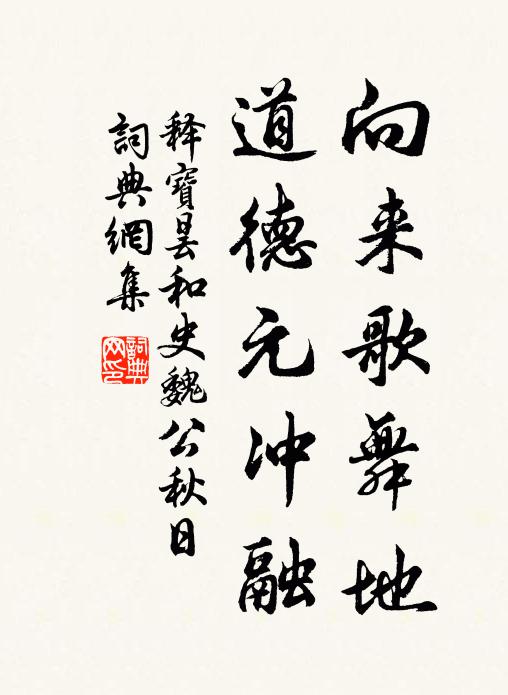 向来歌舞地
道德元冲融
释寶昙和史魏公秋日
詞典網集
詞典网印